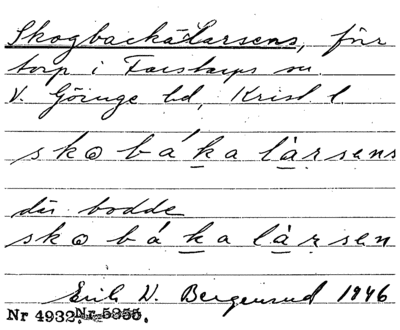 Skogbacka-Larsens, förr
torp i Farstorps sn.
V. Göinge hd, Krist. l
skɷ bá ka làrsens
där bodde
skɷ bá ka làrsen
Erik W. Bergensund 1946
Nr 4932. Nr 5355.